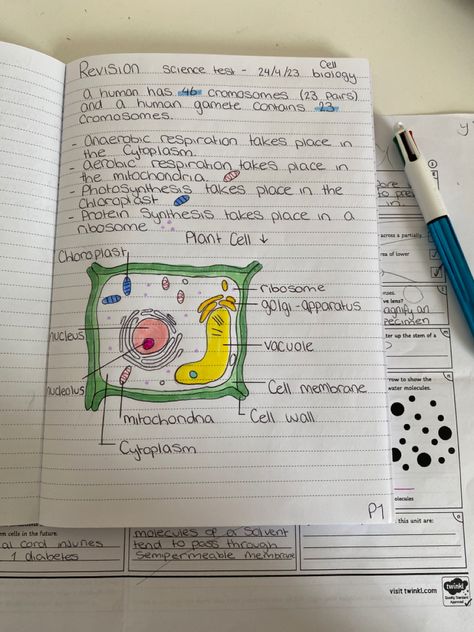 Revision science test - 24/4/23 Cell biology
a human has 46 cromosomes (23 pairs)
and a human gamete contains 23
cromosomes.
- Anaerobic respiration takes place in
the cytoplasm.
aerobic respiration takes place in
the mitochondria.
- Photosynthesis takes place in the
Chloroplast
- Protein Synthesis takes place in a
ribosome
Plant Cell ↓
Chloroplast
ribosome
golgi-apparatus
nucleus
vacuole
nucleolus
Cell membrane
mitochondria
Cell wall
Cytoplasm
P1
across a partially
area of lower
ve lens?
agnify an
pecimen
ter up the stem of a
row to show the
water molecules.
olecules
, this unit are:
em cells in the future.
al cord injuries
1 diabetes
molecules of a solvent
tend to pass through
Semipermeable membrane
visit twinkl.com
twinkl
Quality Standard
Approved